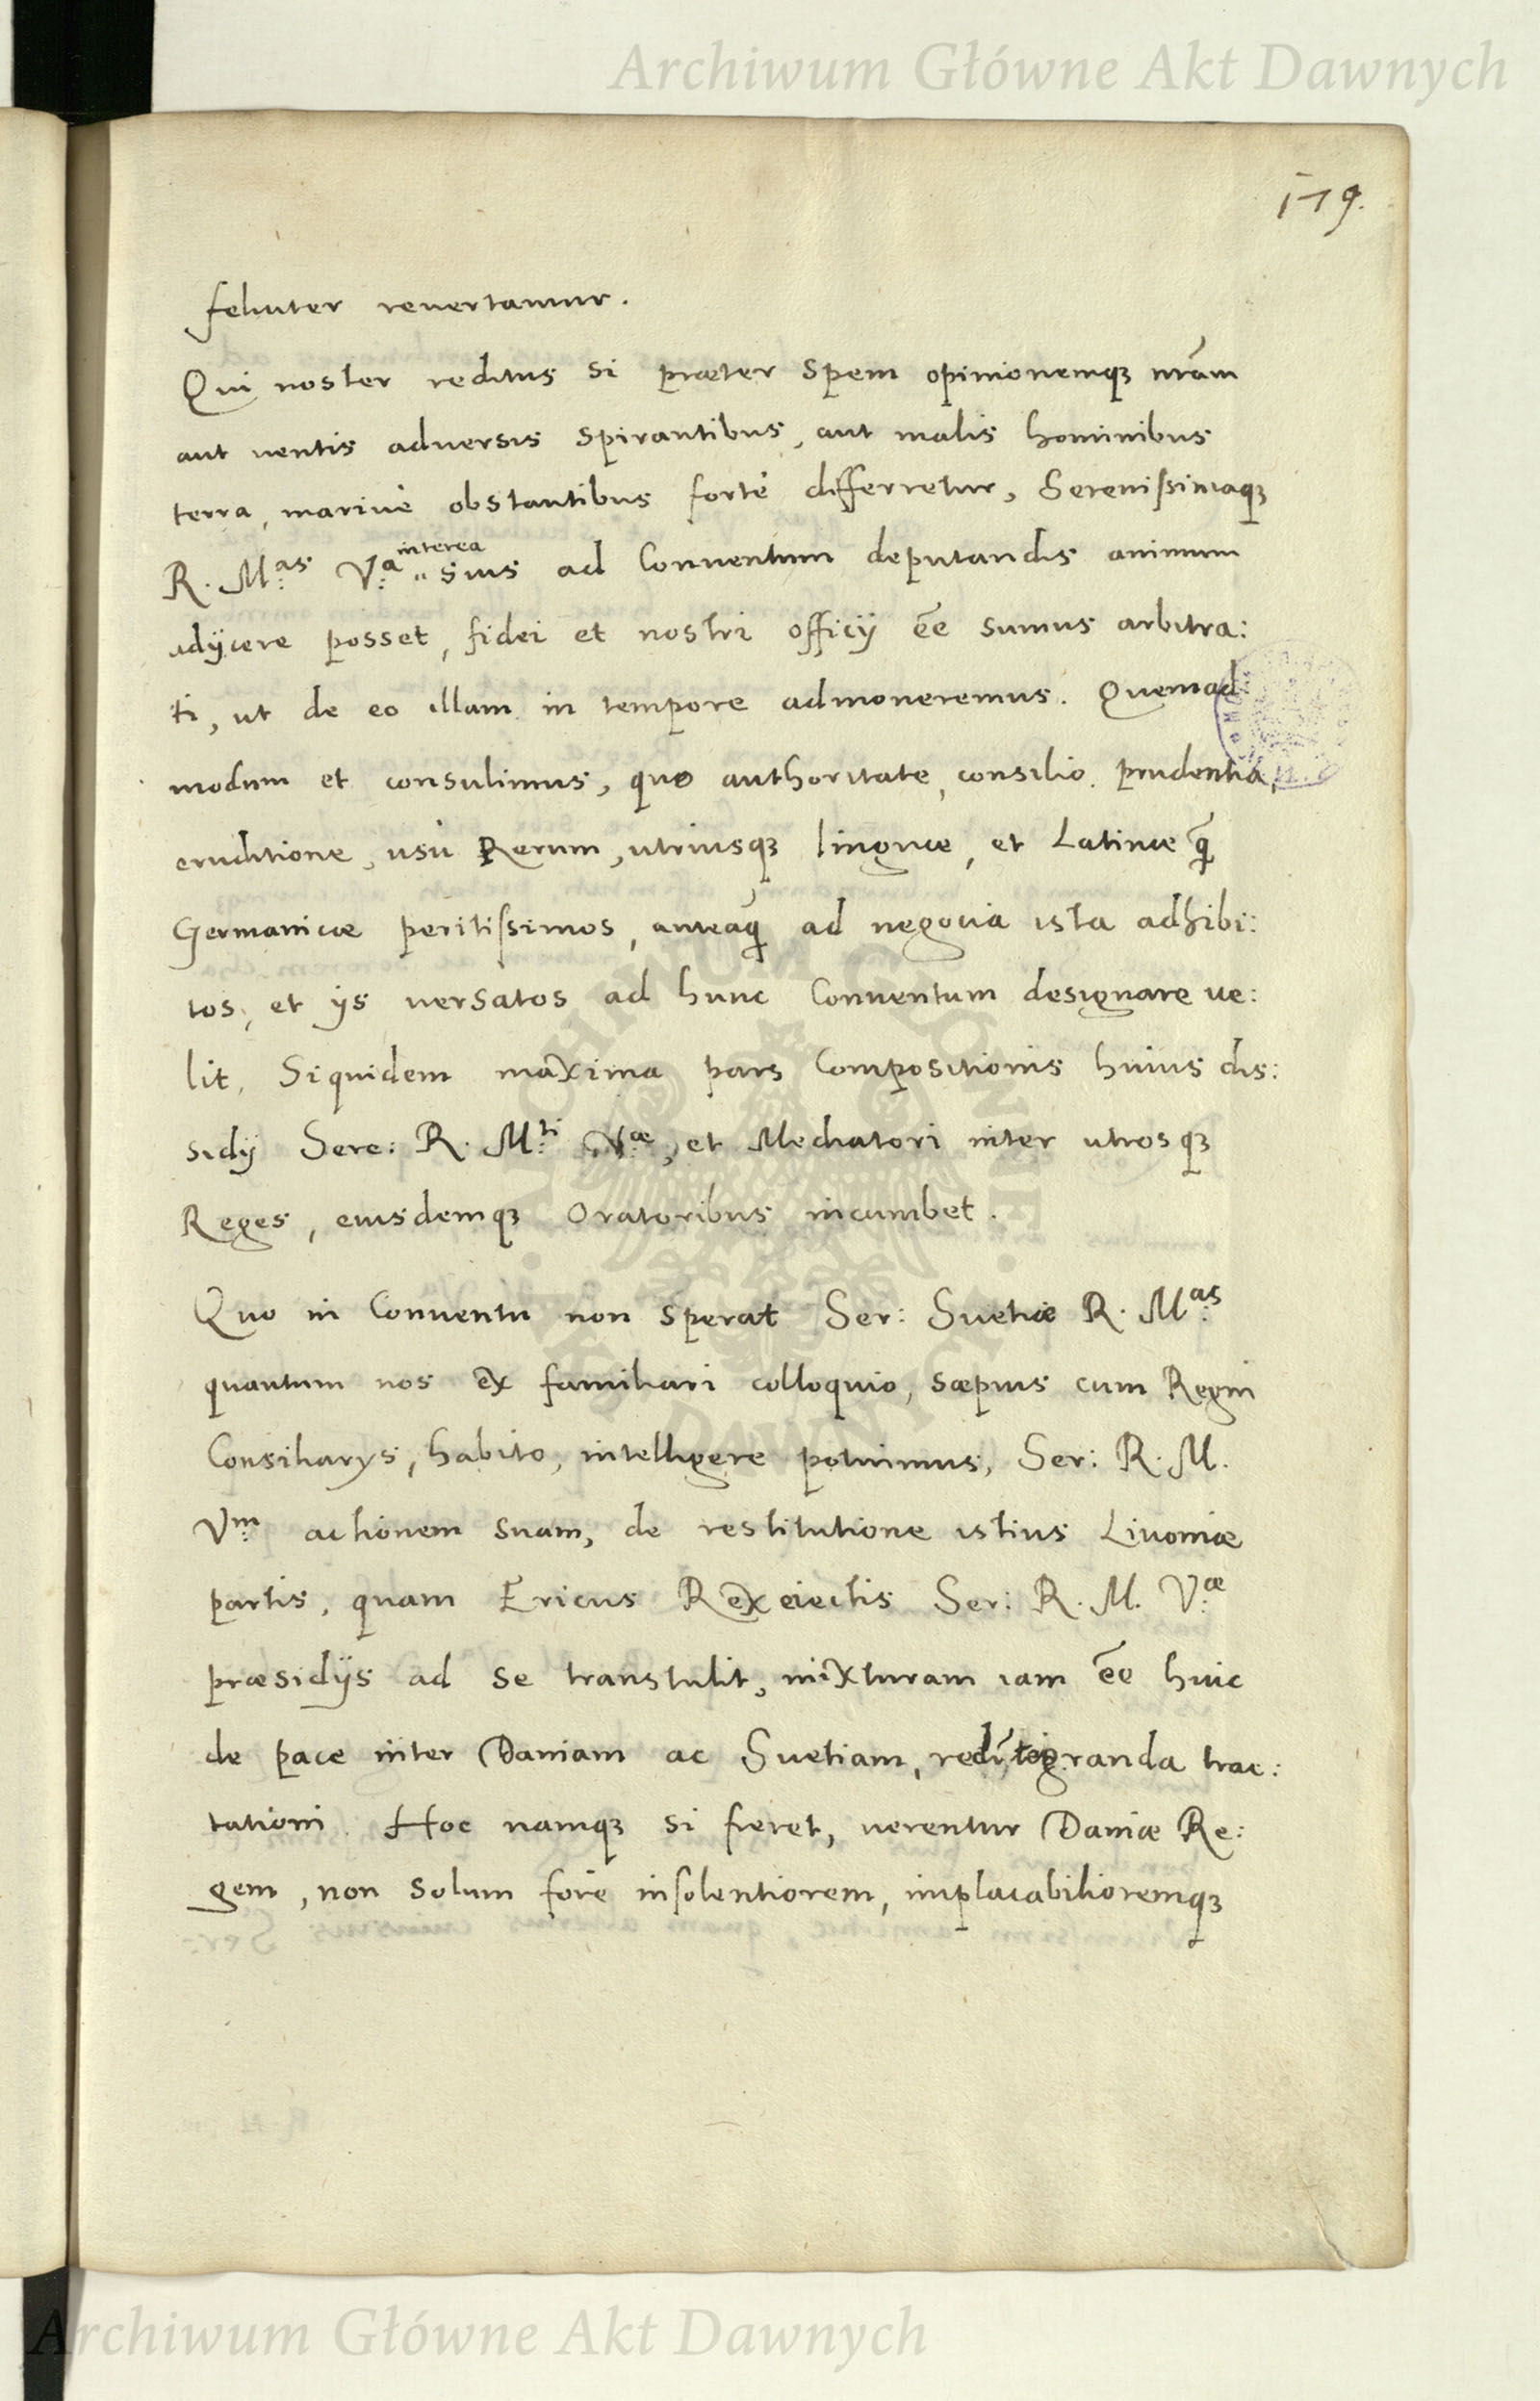 Archiwum Główne Akt Dawnych
179.
feliciter reuertamur.
Qui noster reditus si præter spem opinionemqȝ nr̃am
aut uentis aduersis spirantibus, aut malis hominibus
terra, mariuè obstantibus fortè differretur, Serenissimaqȝ
R. M.as V.a interea suis ad Conuentum deputandis animum
adijcere posset, fidei et nostri officij eẽ sumus arbitra:
ti, ut de eo illam in tempore admoneremus. Quemad:
modum et consulimus, quo authoritate, consilio, prudentia,
eruditione, usu Rerum, utriusqȝ linguæ, et Latinæ q̃
Germanicæ peritissimos, anteaq̃ ad negocia ista adhibi:
tos, et ijs uersatos ad hunc Conuentum designare ue:
lit, Siquidem maxima pars Compositionis huius dis:
sidij Sere: R. M.ti V.æ, et Mediatori inter utrosqȝ
Reges, eiusdemqȝ Oratoribus incumbet.
Quo in Conuentu non sperat Ser: Suetiæ R. M.as
quantum nos ex familiari colloquio, sæpius cum Regni
Consiliarijs, habito, intelligere potuimus, Ser: R. M.
V.m actionem suam, de restitutione istius Liuoniæ
partis, quam Ericus Rex eiectis Ser: R. M. V.æ
præsidijs ad se transtulit, mixturam iam eẽ huic
de pace inter Daniam ac Suetiam, redintegranda trac:
tationi. Hoc namqȝ si fieret, uerentur Daniæ Re:
gem, non solum fore insolentiorem, implacabilioremqȝ
Archiwum Główne Akt Dawnych